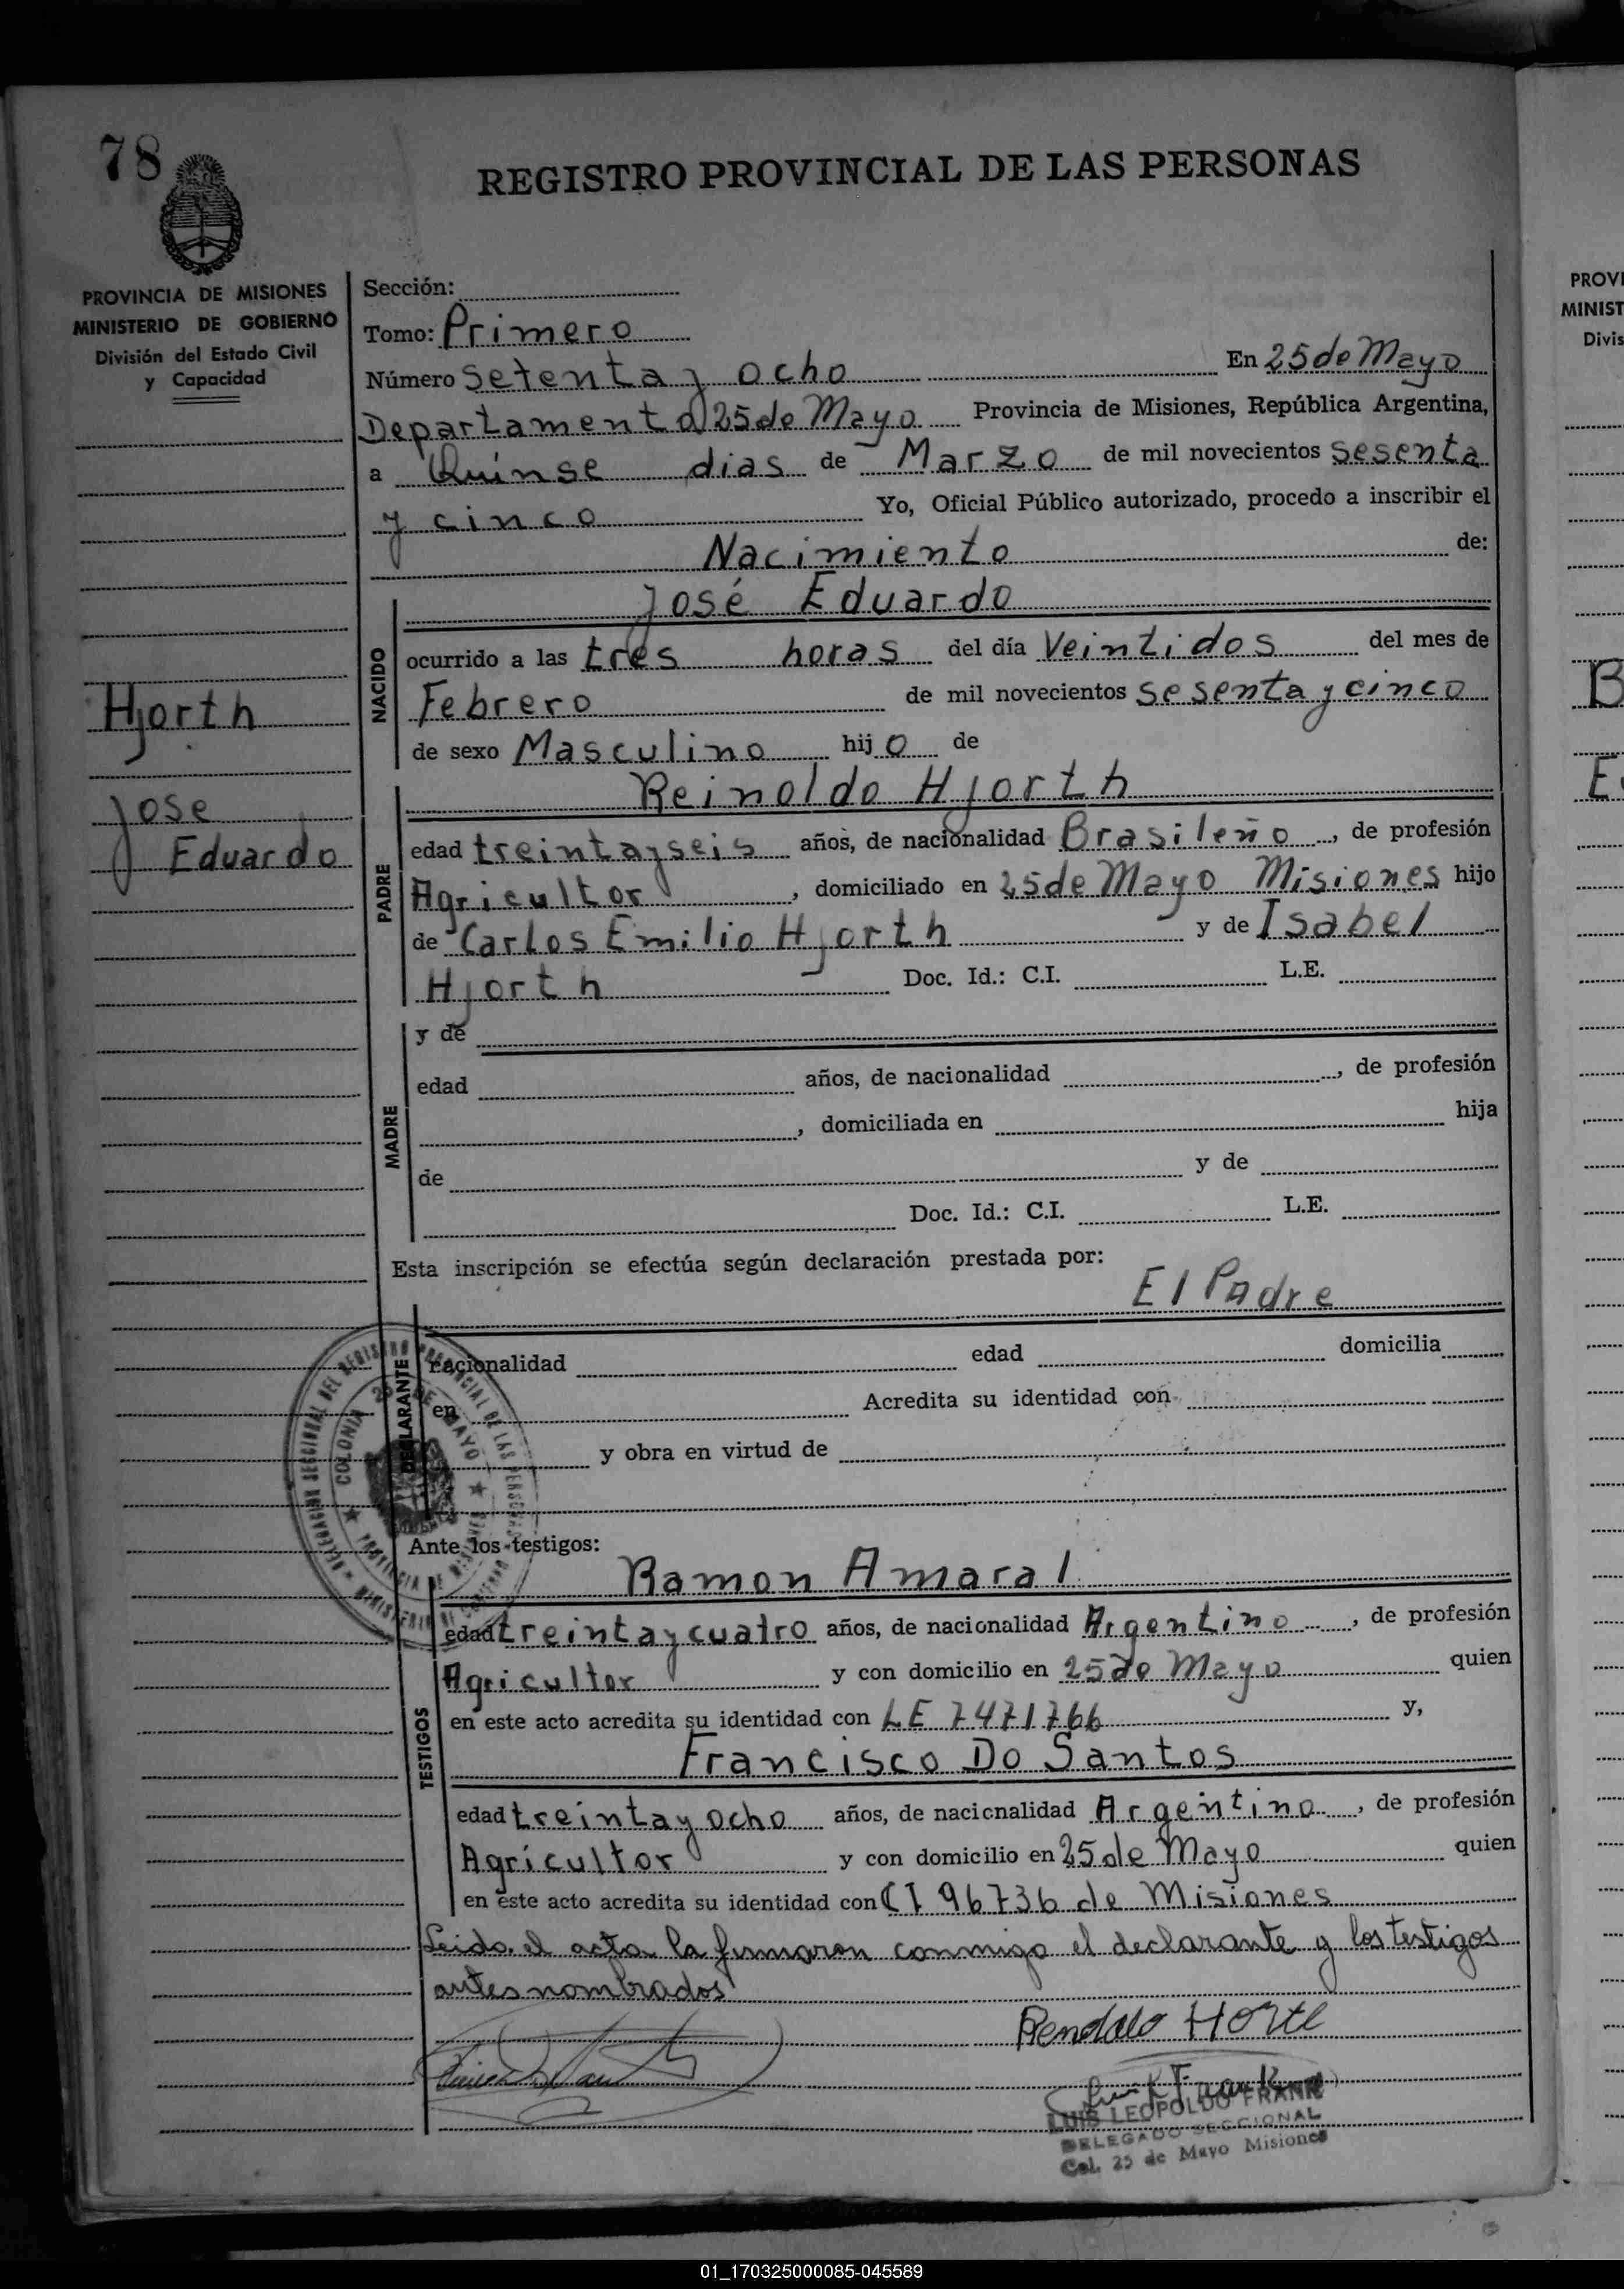 78
REGISTRO PROVINCIAL DE LAS PERSONAS
PROVINCIA DE MISIONES
MINISTERIO DE GOBIERNO
División del Estado Civil
y Capacidad
Sección:
Tomo: Primero
Número Setenta y ocho En 25 de Mayo
Departamento 25 de Mayo Provincia de Misiones, República Argentina,
a Quinse dias de Marzo de mil novecientos sesenta
y cinco Yo, Oficial Público autorizado, procedo a inscribir el
Nacimiento de:
José Eduardo
NACIDO
ocurrido a las tres horas del día Veintidos del mes de
Febrero de mil novecientos sesenta y cinco
de sexo Masculino hijo de
Hjorth
Jose
Eduardo
Reinoldo Hjorth
PADRE
edad treinta y seis años, de nacionalidad Brasileño, de profesión
Agricultor, domiciliado en 25 de Mayo Misiones hijo
de Carlos Emilio Hjorth y de Isabel
Hjorth Doc. Id.: C.I. L.E.
MADRE
y de
edad años, de nacionalidad , de profesión
, domiciliada en hija
de y de
Doc. Id.: C.I. L.E.
Esta inscripción se efectúa según declaración prestada por:
El Padre
DECLARANTE
nacionalidad edad domicilia
en Acredita su identidad con
y obra en virtud de
COLONIA 25 DE MAYO
Ante los testigos:
Ramon Amaral
TESTIGOS
edad treinta y cuatro años, de nacionalidad Argentino, de profesión
Agricultor y con domicilio en 25 de Mayo quien
en este acto acredita su identidad con LE 7471766 y,
Francisco Do Santos
edad treinta y ocho años, de nacionalidad Argentino, de profesión
Agricultor y con domicilio en 25 de Mayo quien
en este acto acredita su identidad con CI 96736 de Misiones
Leido el acta la firmaron conmigo el declarante y los testigos
antes nombrados
LUIS LEOPOLDO FRANK
DELEGADO SECCIONAL
Col. 25 de Mayo Misiones
PROVI
MINIST
Divis
B
E
01_170325000085-045589